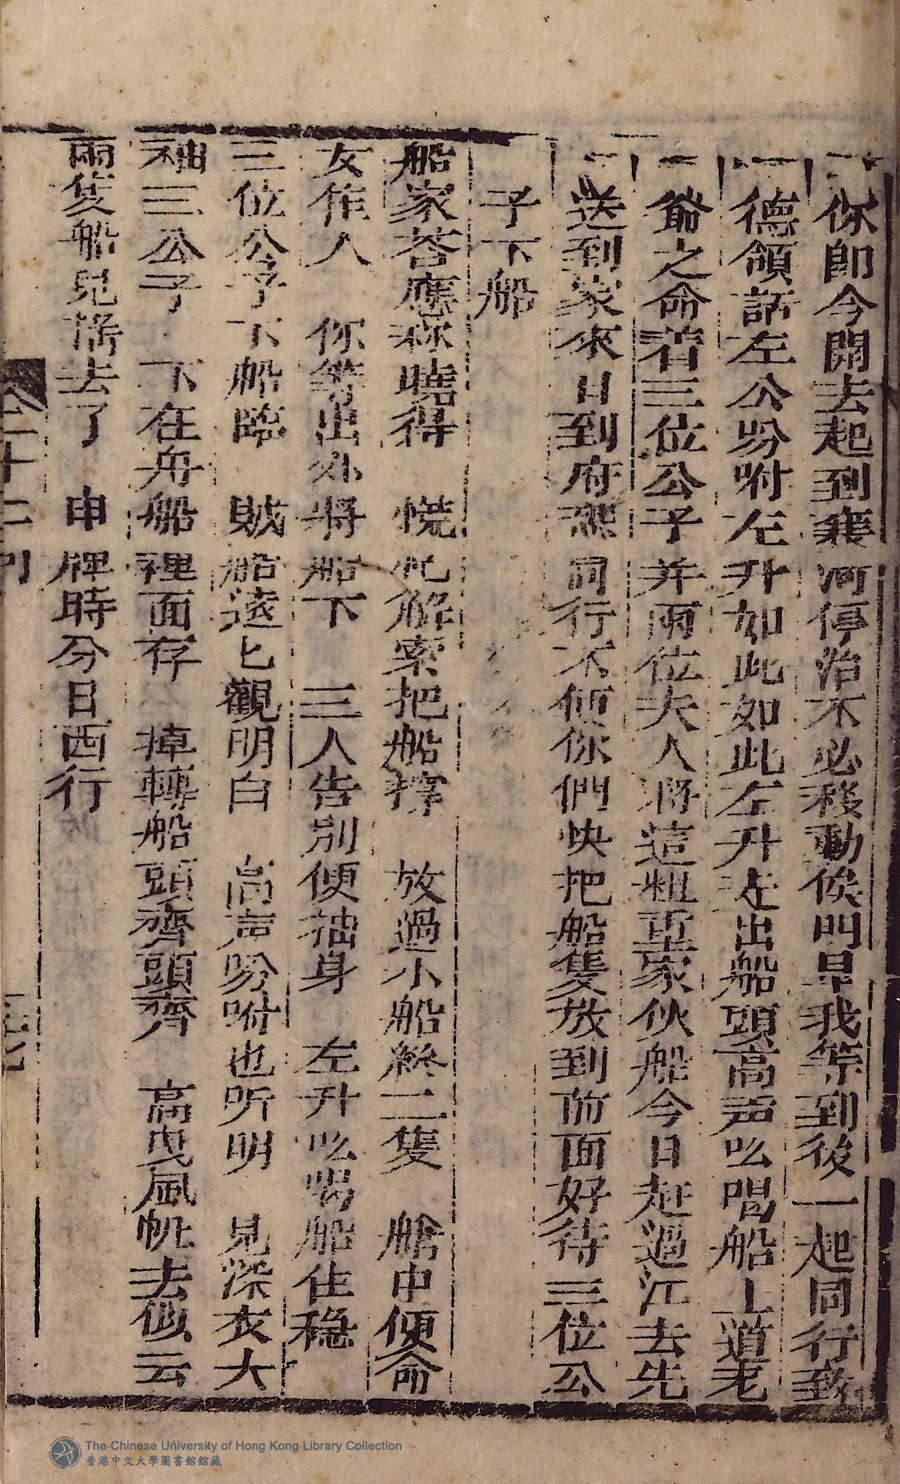 你即今開去起到襄河停治不必移動候明早我等到後一起同行致
一德領話左公吩咐左升如此如此左升走出船頭高声吆喝船上道老
爺之命着三位公子并兩位夫人將這粗重家伙船今日赶過江去先
送到家來日到府 同行不便你們快把船隻放到前面好待三位公
子下船
船家荅應称曉得 慌忙解索把船撑 放過小船終二隻 艙中便命
女作人 你等出外將船下 三人告别便抽身 左升吆喝船住穩
三位公子下船臨 賊船遠匕觀明白 高声吩咐也听明 見深衣大
袖三公子 下在舟船裡面存 掉轉船頭齊頭齊 高曳風帆去似云
兩隻船兒 去了 申牌時分日西行
卷二十二列
三十七
The Chinese University of Hong Kong Library Collection
香港中文大學圖書館館藏